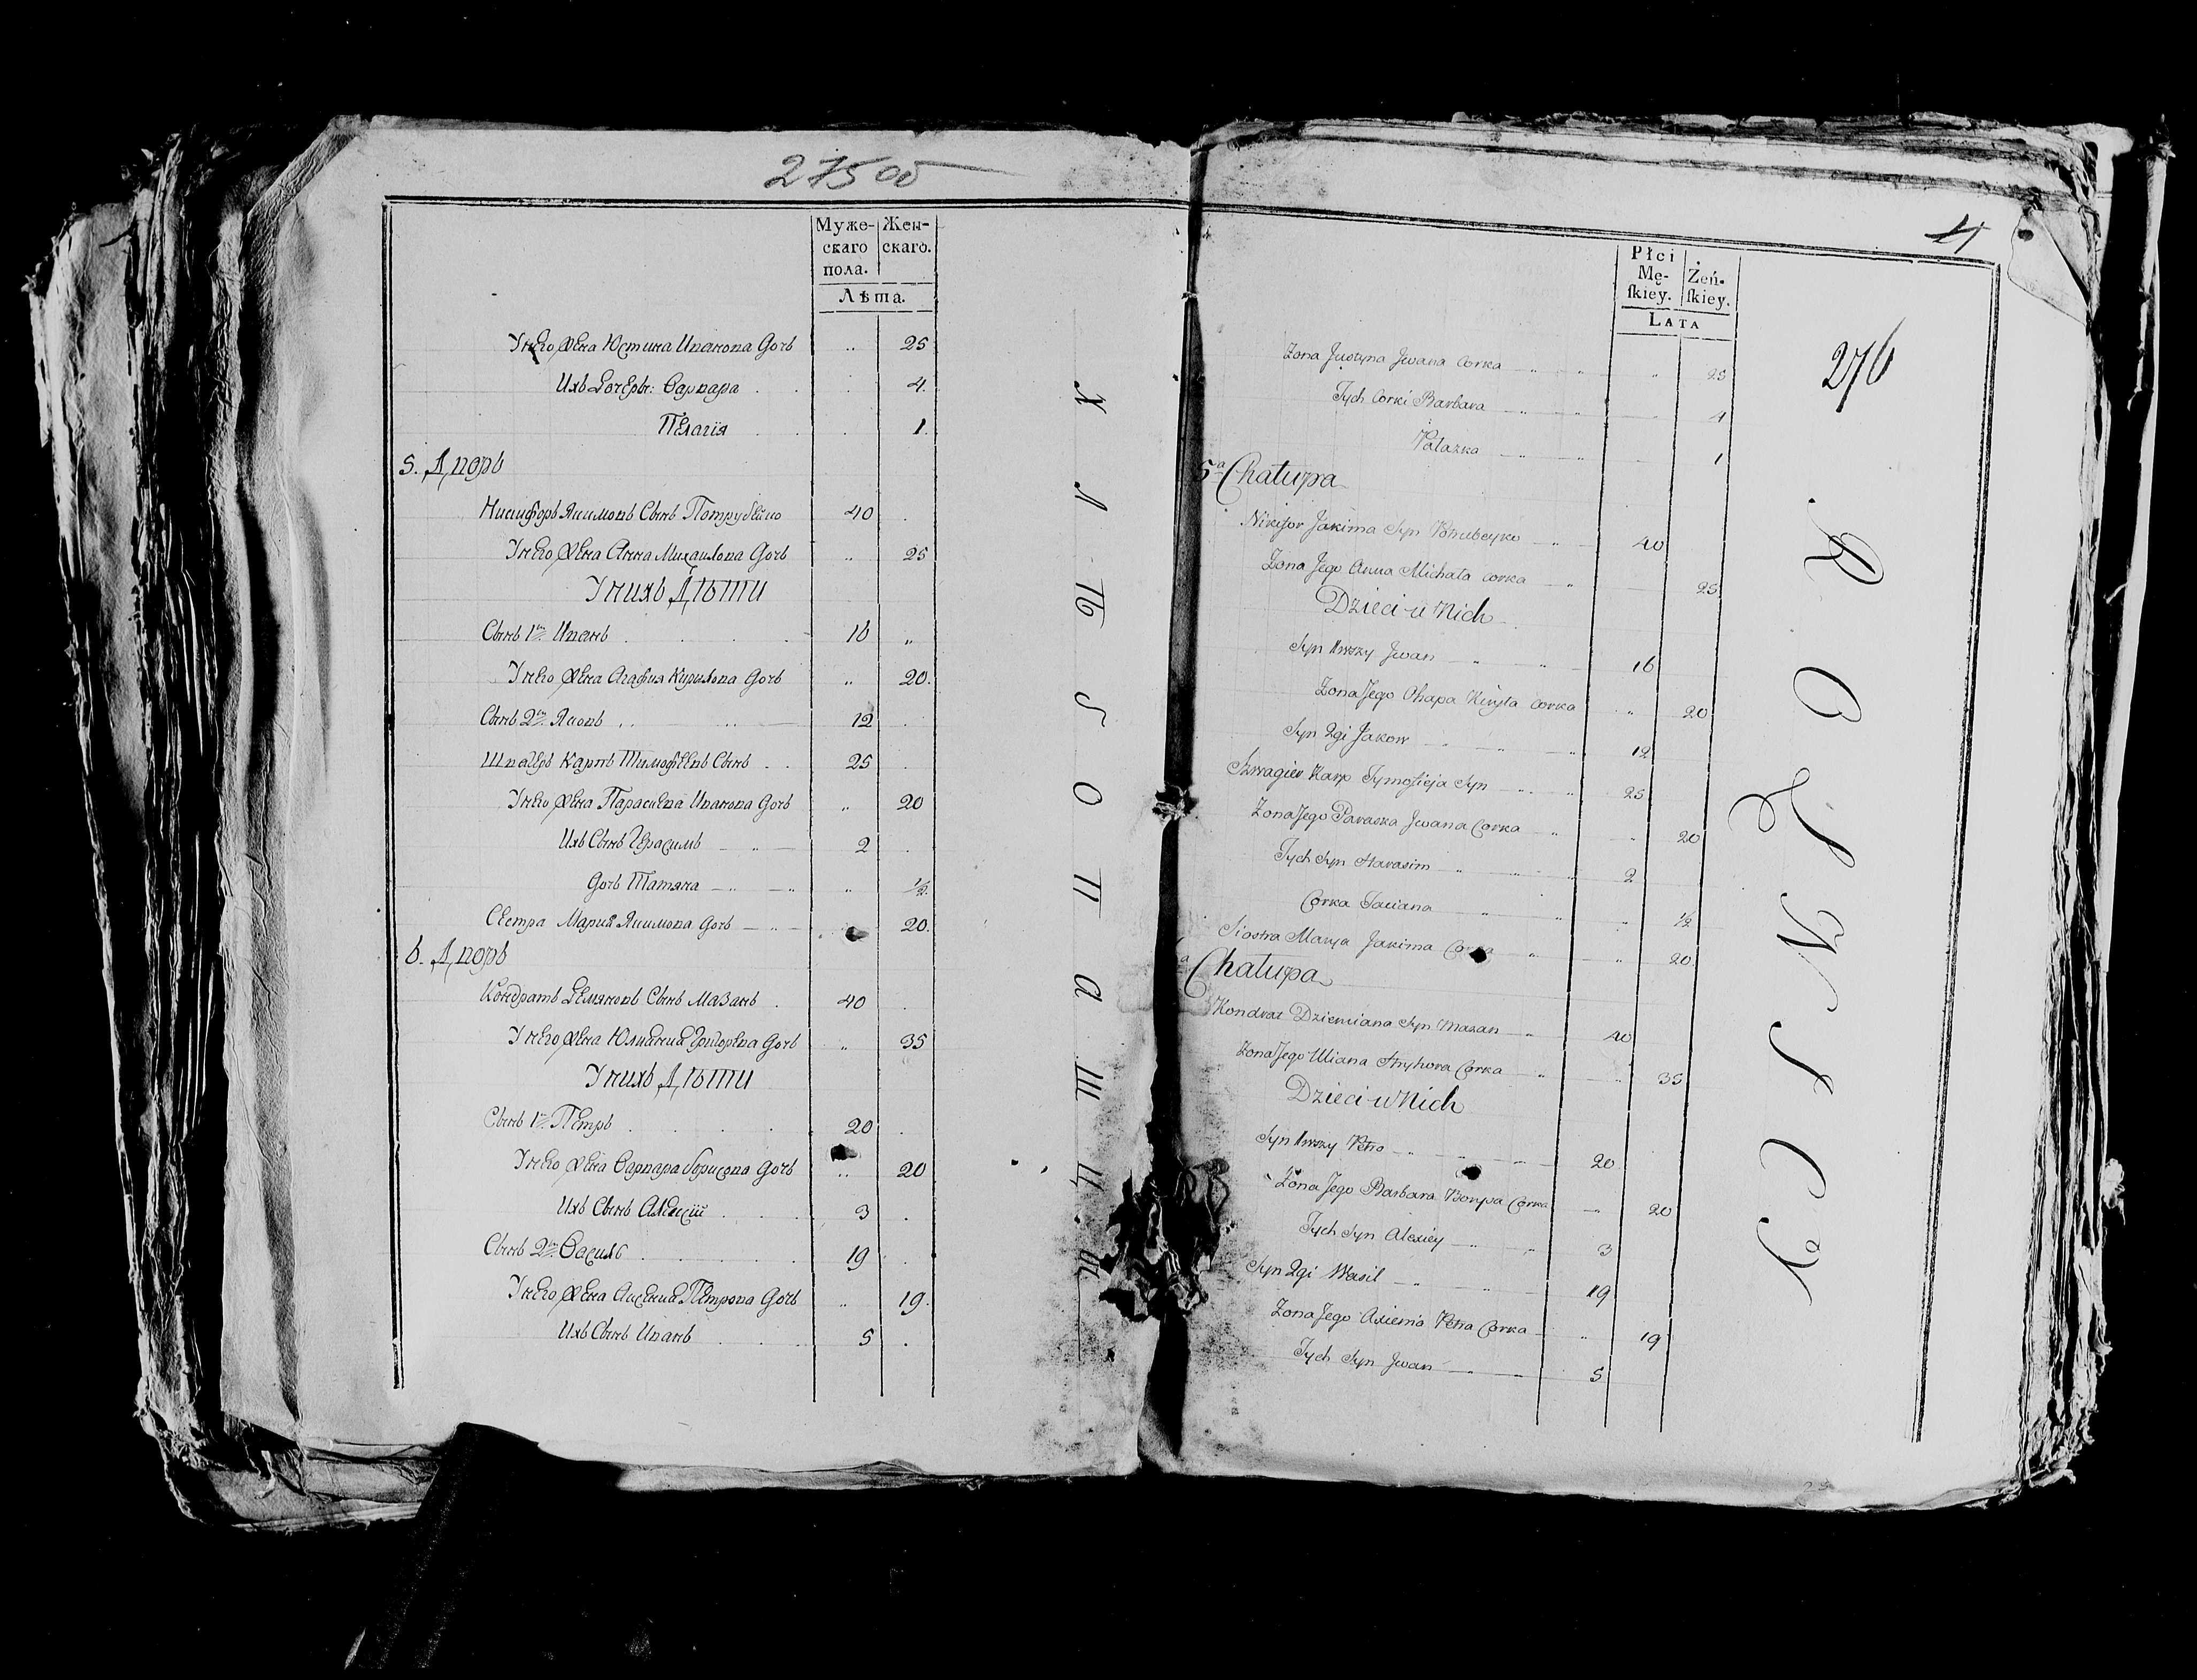 275 об
Муже-
скаго
пола.
Жен-
скаго.
Лѣта.
У него Жена Юстина Иванова дочь „ 25
Ихъ Дочери: Варвара 4
Пелагія 1
5. Дворъ
Никифоръ Якимовъ Сынъ Потрубейко 40
У него Жена Анна Михайлова дочь „ 25
У нихъ Дѣти
Сынъ 1й Иванъ 16 „
У него Жена Агафия Кирилова дочь „ 20
Сынъ 2й Яковъ 12
Швагеръ Карпъ Тимофеевъ Сынъ 25
У него Жена Парасковия Иванова дочь „ 20
Ихъ Сынъ Герасимъ 2
дочь Татяна „ ½
Сестра Мария Якимова дочь 20
6. Дворъ
Кондратъ Демяновъ Сынъ Мазанъ 40
У него Жена Юлиания Григорьева дочь „ 35
У нихъ Дѣти
Сынъ 1й Петръ 20
У него Жена Варвара Борисова дочь „ 20
Ихъ Сынъ Алексій 3
Сынъ 2й Василь 19
У него Жена Аксения Петрова дочь „ 19
Ихъ Сынъ Иванъ 5
ХЛѢБОПАШЦЫ
4
276
Płci
Mę-
ſkiey.
Żeń-
ſkiey.
LATA
Żona Justyna Jwana Corka „ 25
Tych Corki Barbara 4
Pałazka 1
5a Chałupa
Nikifor Jakima Syn Potrubeyko 40
Żona Jego Anna Michała corka 25
Dzieci u Nich
Syn 1wszy Jwan 16
Żona Jego Ohapa Kiryła corka „ 20
Syn 2gi Jakow 12
Szwagier Karp Tymofieja Syn 25
Żona Jego Paraska Jwana Corka „ 20
Tych Syn Harasim 2
Corka Taciana „ ½
Siostra Marya Jakima Corka „ 20
a Chałupa
Kondrat Dziemiana Syn Mazan 40
Żona Jego Uliana Hryhora Corka „ 35
Dzieci u Nich
Syn 1wszy Petro 20
Żona Jego Barbara Borysa Corka 20
Tych Syn Alexiey 3
Syn 2gi Wasil 19
Żona Jego Axienia Petra Corka „ 19
Tych Syn Jwan 5
ROLNICY